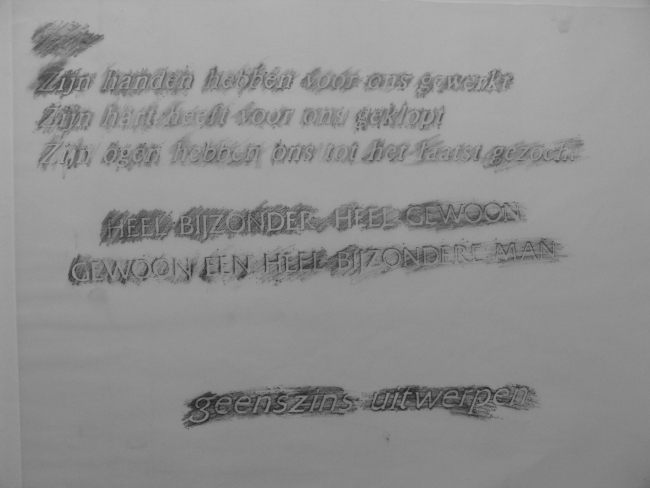 Zijn handen hebben voor ons gewerkt
Zijn hart heeft voor ons geklopt
Zijn ogen hebben ons tot het laatst gezocht
HEEL BIJZONDER, HEEL GEWOON
GEWOON EEN HEEL BIJZONDERE MAN
geenszins uitwerpen